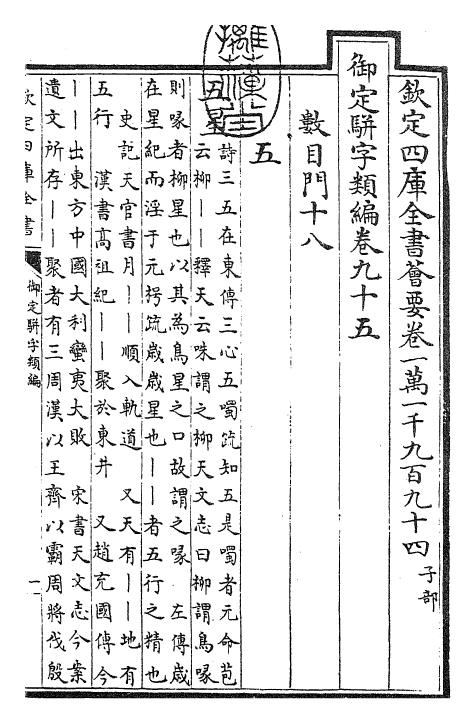 欽定四庫全書薈要卷一萬一千九百九十四 子部
御定駢字類編卷九十五
數目門十八
五
五星
詩三五在東傳三心五噣䟽知五是噣者元命苞
云柳丨丨釋天云咮謂之柳天文志曰柳謂鳥喙
則喙者柳星也以其為鳥星之口故謂之喙 左傳歲
在星紀而淫于元枵䟽歲歲星也丨丨者五行之精也
史記天官書月丨丨順入軌道 又天有丨丨地有
五行 漢書高祖紀丨丨聚於東井 又趙充國傳今
丨丨出東方中國大利蠻夷大敗 宋書天文志今案
遺文所存丨丨聚者有三周漢以王齊以霸周將伐殷
欽定四庫全書
御定駢字類編
一